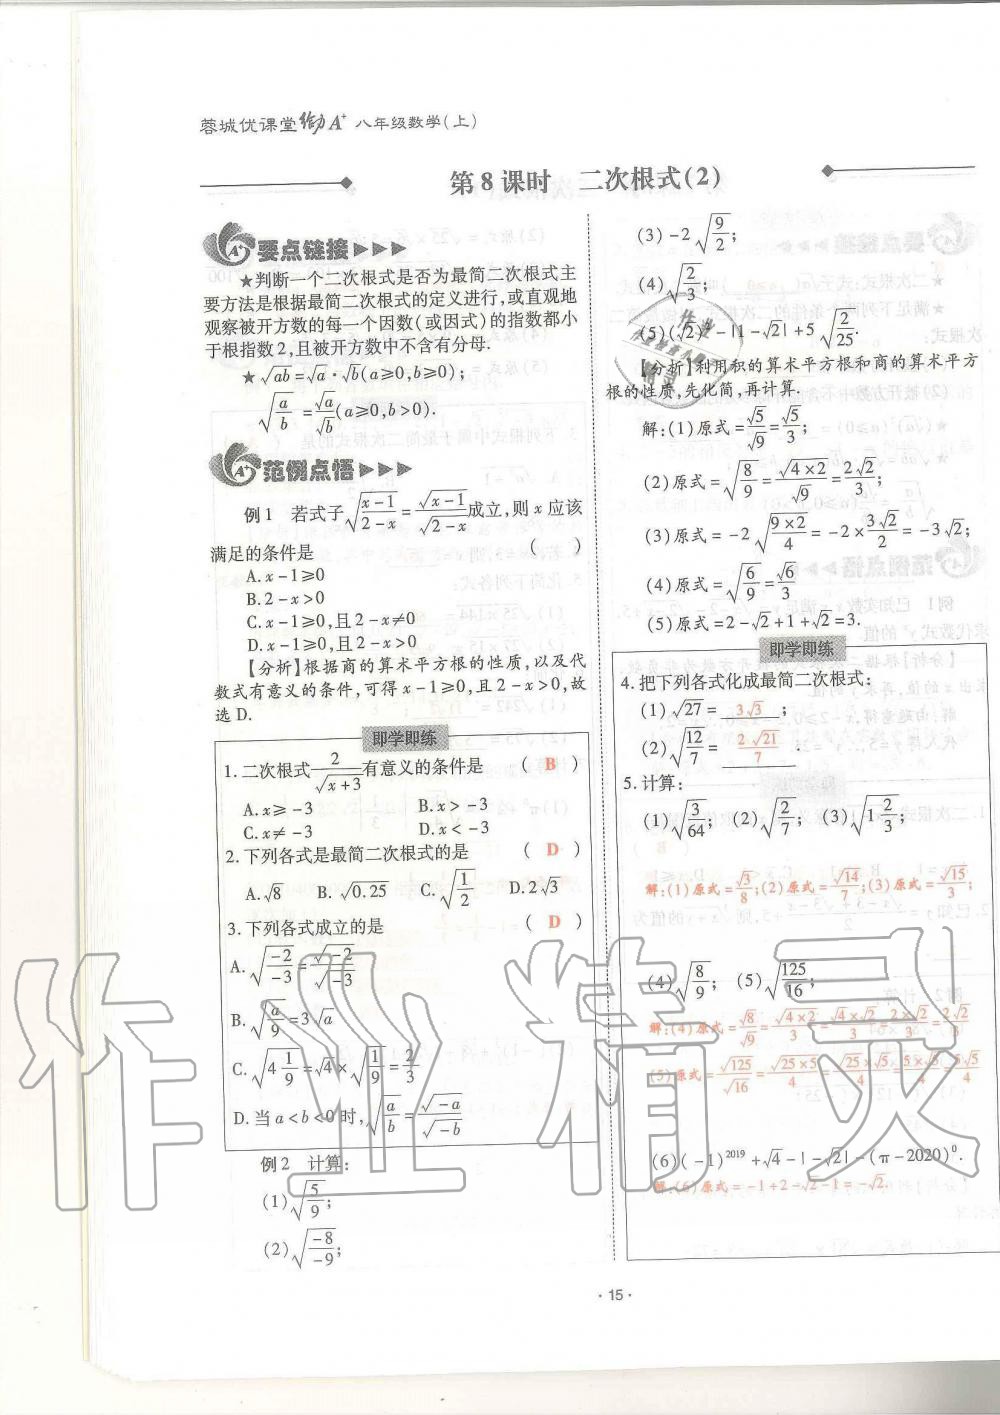 蓉城优课堂给力A⁺ 八年级数学(上)
第8课时 二次根式(2)
要点链接
★判断一个二次根式是否为最简二次根式主
要方法是根据最简二次根式的定义进行,或直观地
观察被开方数的每一个因数(或因式)的指数都小
于根指数2,且被开方数中不含有分母.
★√(ab)=√a·√b(a≥0,b≥0);
√(a/b)=√a/√b(a≥0,b>0).
范例点悟
例1 若式子√((x-1)/(2-x))=√(x-1)/√(2-x)成立,则x应该
满足的条件是 ( )
A.x-1≥0
B.2-x>0
C.x-1≥0,且2-x≠0
D.x-1≥0,且2-x>0
【分析】根据商的算术平方根的性质,以及代
数式有意义的条件,可得x-1≥0,且2-x>0,故
选D.
即学即练
1.二次根式2/√(x+3)有意义的条件是 ( B )
A.x≥-3 B.x>-3
C.x≠-3 D.x<-3
2.下列各式是最简二次根式的是 ( D )
A.√8 B.√0.25 C.√(1/2) D.2√3
3.下列各式成立的是 ( D )
A.√(-2/-3)=√-2/√-3
B.√(a/9)=3√a
C.√(4 1/9)=√4×√(1/9)=2/3
D.当a<b<0时,√(a/b)=√(-a)/√(-b)
例2 计算:
(1)√(5/9);
(2)√(-8/-9);
(3)-2√(9/2);
(4)√(2/3);
(5)(√2)²-|1-√2|+5√(2/25).
【分析】利用积的算术平方根和商的算术平方
根的性质,先化简,再计算.
解:(1)原式=√5/√9=√5/3;
(2)原式=√(8/9)=√(4×2)/√9=2√2/3;
(3)原式=-2√(9×2/4)=-2×3√2/2=-3√2;
(4)原式=√(6/9)=√6/3
(5)原式=2-√2+1+√2=3.
即学即练
4.把下列各式化成最简二次根式:
(1)√27= 3√3 ;
(2)√(12/7)= 2√21/7
5.计算:
(1)√(3/64); (2)√(2/7); (3)√(1 2/3);
解:(1)原式=√3/8;(2)原式=√14/7;(3)原式=√15/3;
(4)√(8/9); (5)√(125/16);
解:(4)原式=√8/√9=√(4×2)/3=√4×√2/3=2×√2/3=2√2/3
(5)原式=√125/√16=√(25×5)/4=√25×√5/4=5×√5/4=5√5/4
(6)(-1)²⁰¹⁹+√4-|-√2|-(π-2020)⁰.
解:(6)原式=-1+2-√2-1=-√2.
·15·
作业精灵